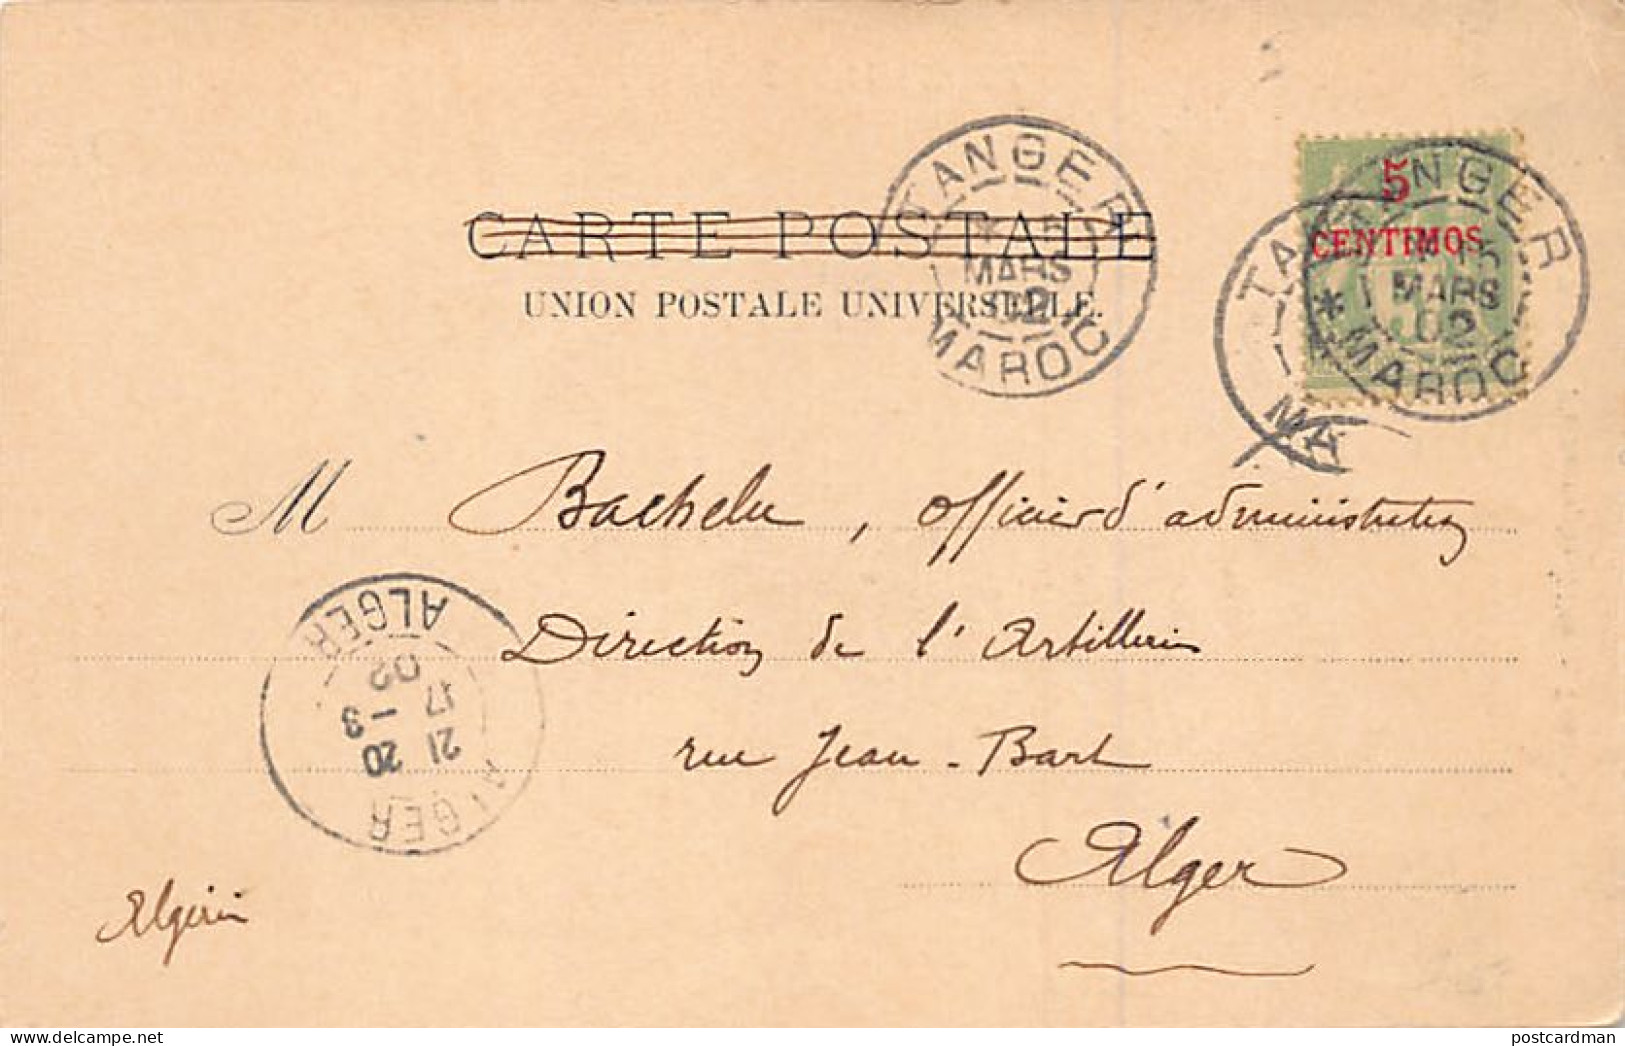 TANGER
15
MARS
02
MAROC
5
CENTIMOS
TANGER
15
MARS
02
MAROC
TA
MA
CARTE POSTALE
UNION POSTALE UNIVERSELLE.
M Bachelu, officier d'administration
Direction de l'Artillerie
rue Jean-Bart
Alger
Algérie
ALGER
21 20
17 - 3
02
ALGER
delcampe.net
postcardman